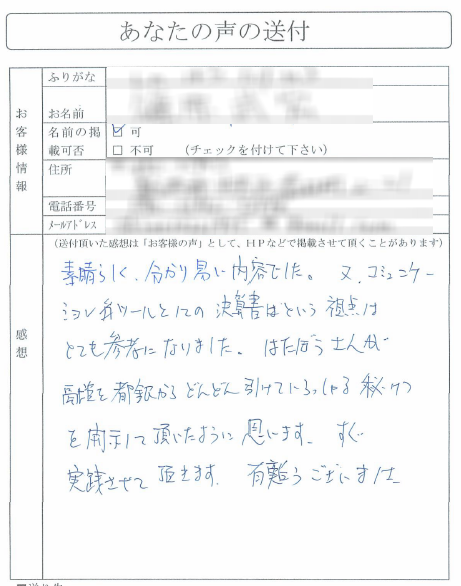 あなたの声の送付
お客様情報
ふりがな
お名前
名前の掲載可否
☑ 可
□ 不可 (チェックを付けて下さい)
住所
電話番号
メールアドレス
感想
(送付頂いた感想は「お客様の声」として、HPなどで掲載させて頂くことがあります)
素晴らしく、分かり易い内容でした。又、コミュニケー
ションツールとしての決算書はという視点は
とても参考になりました。はたぼうさんが
高騰を都銀からどんどん引けていらっしゃる秘けつ
を開示して頂いたように思います。すぐ
実践させて頂きます。有難うございました